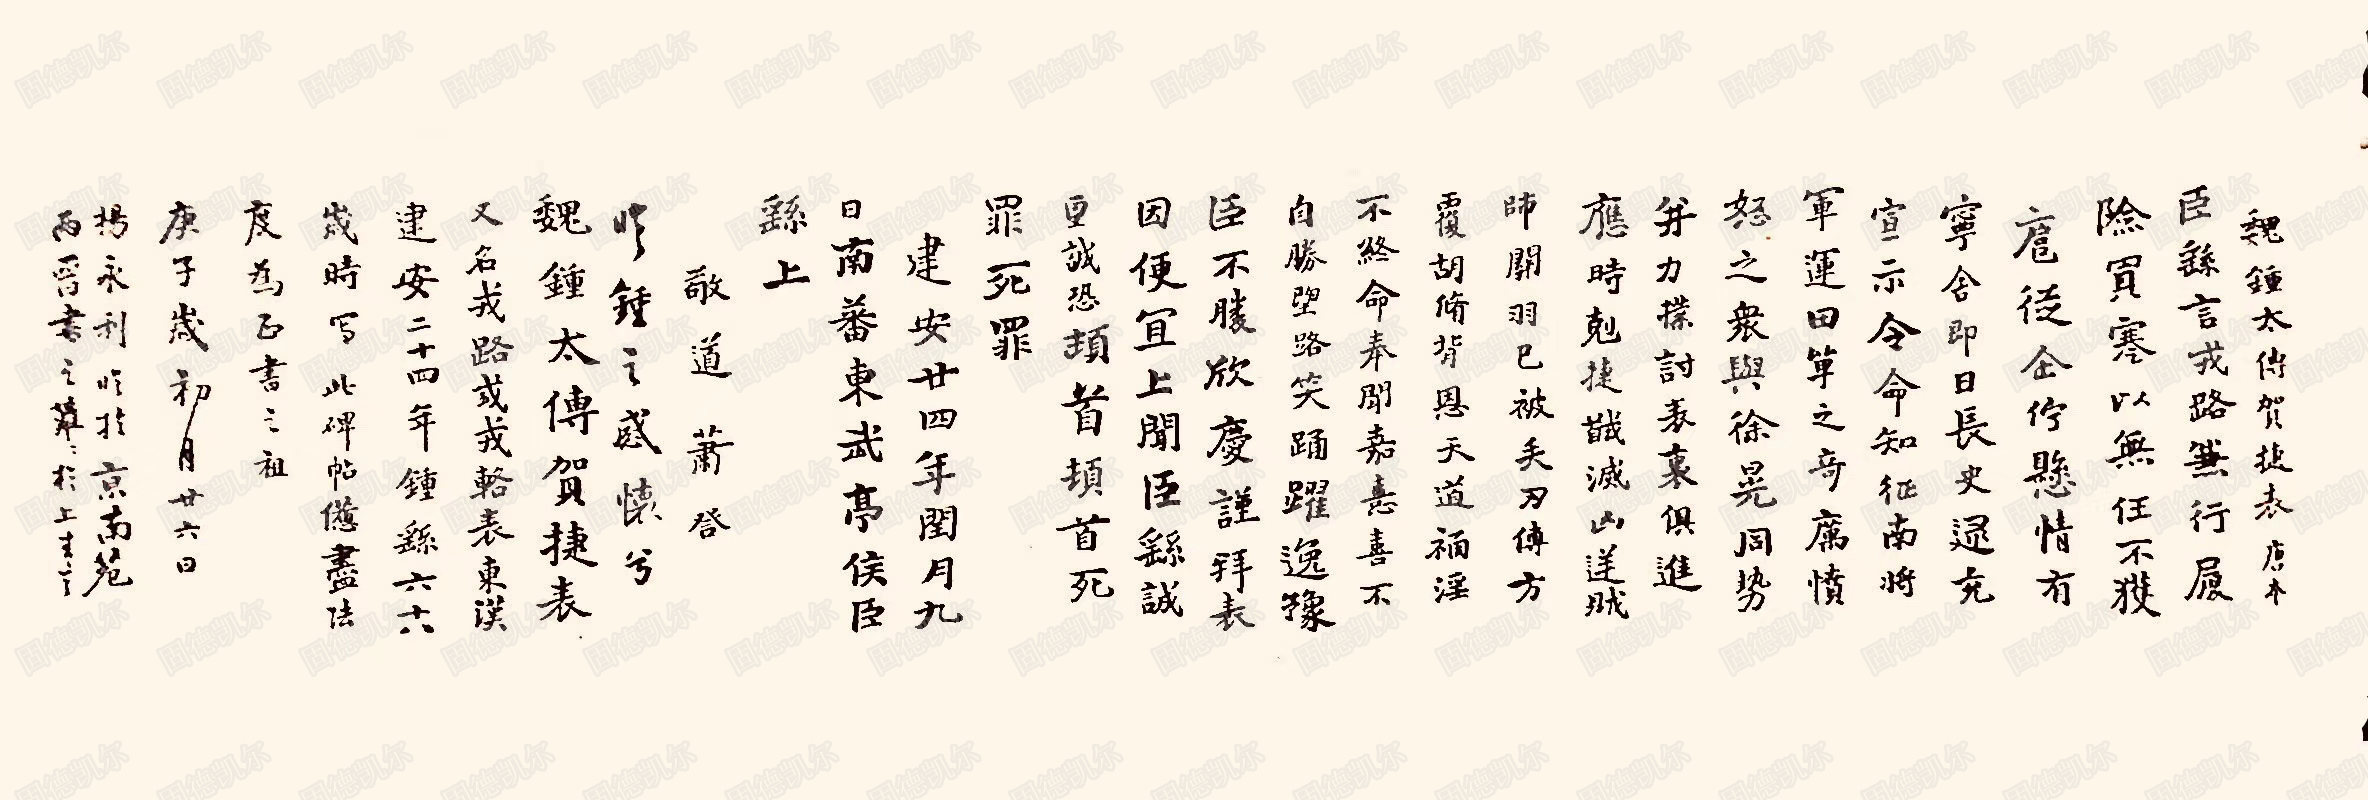 魏鍾太傅賀捷表 唐本
臣繇言戎路兼行履
險冒寒以無任不獲
扈從企佇懸情有
寧舍即日長史逯充
宣示令命知征南將
軍運田單之奇厲憤
怒之衆與徐晃同势
并力撲討表裏俱進
應時剋捷馘滅凶逆賊
帥關羽已被矢刃傅方
覆胡脩背恩天道禍淫
不終命奉聞嘉憙喜不
自勝望路笑踊躍逸豫
臣不勝欣慶謹拜表
因便宜上聞臣繇誠
皇誠恐頓首頓首死
罪死罪
建安廿四年閏月九
日南蕃東武亭侯臣
繇上
敬道 蕭登
鍾之 懐兮
魏鍾太傅賀捷表
又名戎路或戎輅表東漢
建安二十四年鍾繇六十八
歲時写此碑帖儘盡法
度為正書之祖
庚子歲初月廿六日
楊永利 於京南苑
西晋書之 於上